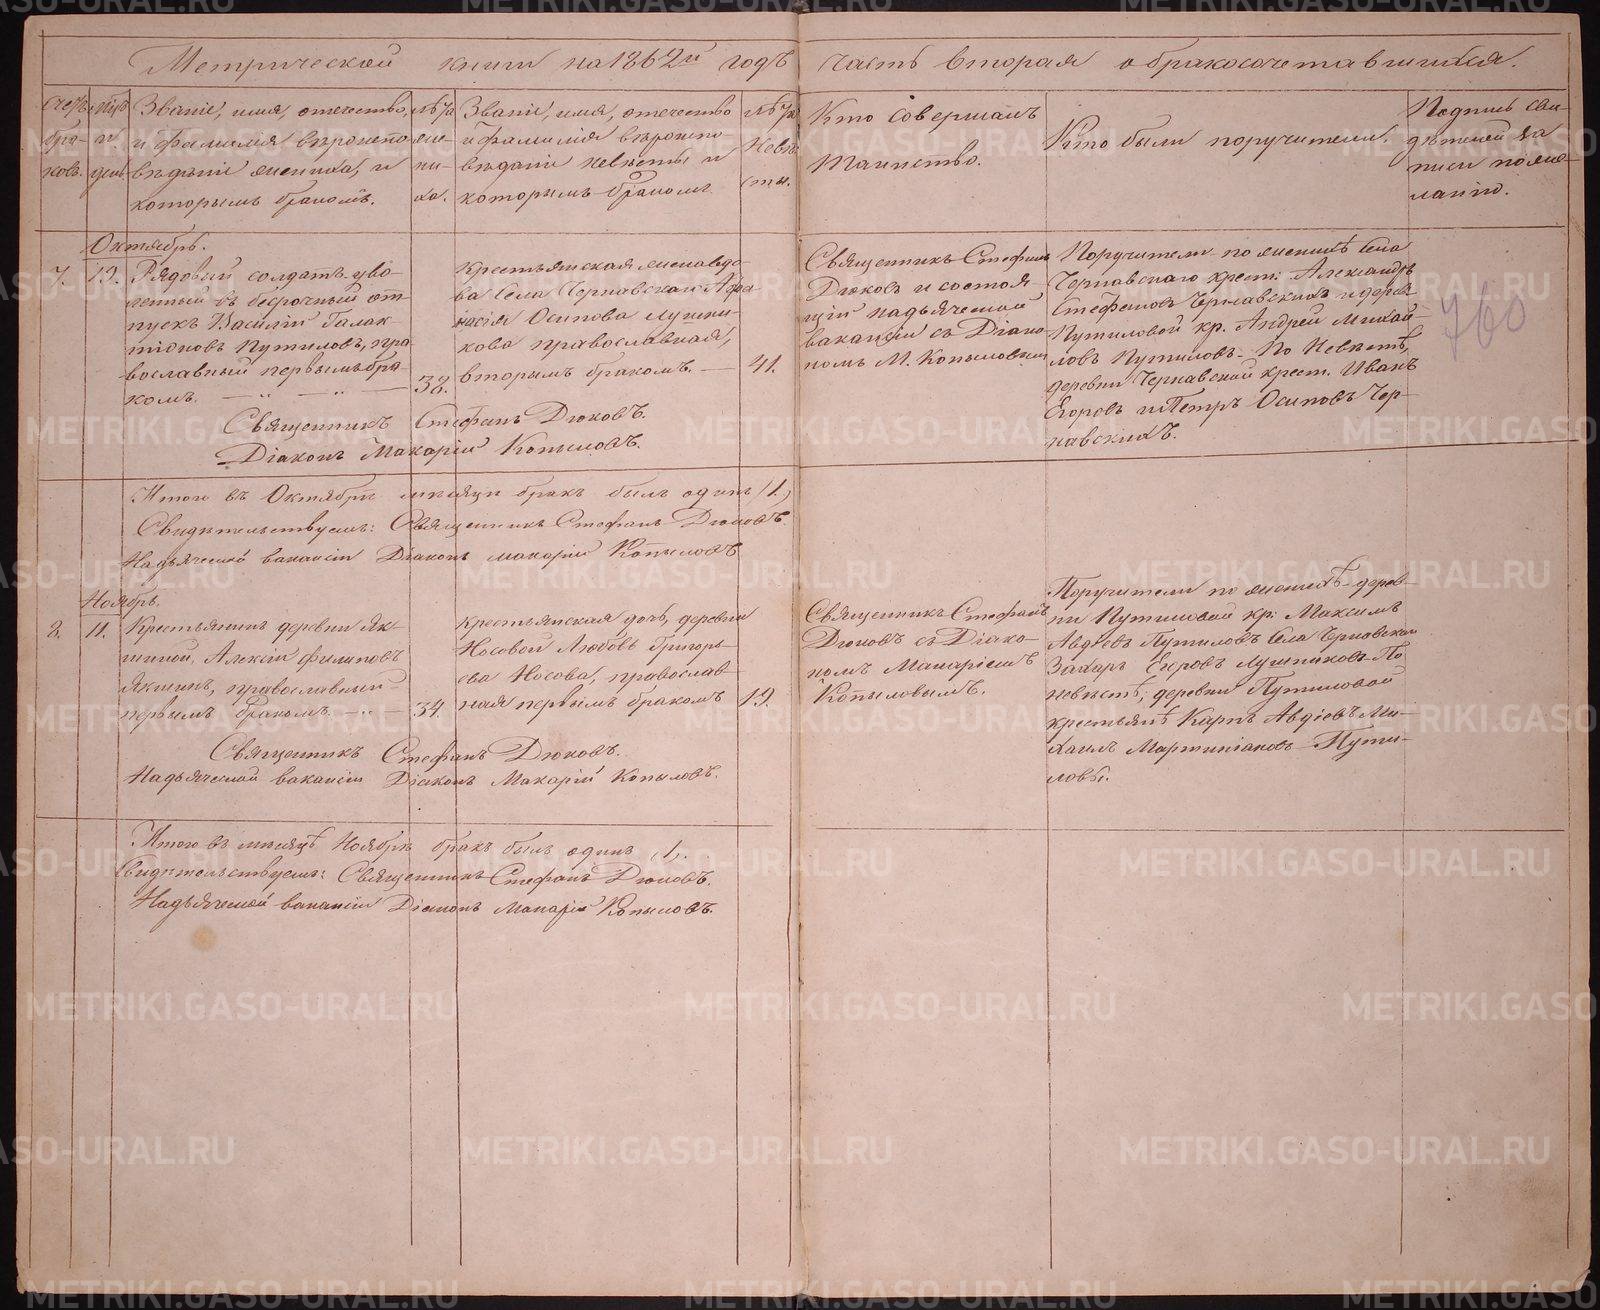 Метрической книги на 1862й годъ часть вторая о бракосочетавшихся.
Счетъ бра-
ковъ.
м-цъ
и
день
Званіе, имя, отечество,
и фамилія вѣроиспо-
вѣданіе жениха, и
которымъ бракомъ.
лѣта
же-
ни-
ха.
Званіе, имя, отечество
и фамилія вѣроиспо-
вѣданіе невѣсты и
которымъ бракомъ.
лѣта
невѣ-
сты.
Кто совершалъ
таинство.
Кто были поручители.
Подпись сви-
дѣтелей за
писи по же-
ланію.
Октябрь.
7.
Рядовый солдатъ уво-
ленный въ безсрочный от-
пускъ Василій Галак-
тіоновъ Путиловъ, пра
вославный первымъ бра-
комъ.
38.
Крестьянская женка вдо-
ва Села Чернавскаго Афа
насія Осипова Лушни-
кова православная,
вторымъ бракомъ.
41.
Священникъ Стефанъ
Дюковъ и состоя
щій на дьяческой
вакансіи съ Діако
номъ М. Копыловым
Поручители по женихѣ Села
Чернавскаго крест: Александръ
Стефановъ Чернавскихъ и дерев
Путиловой кр. Андрей Михай-
ловъ Путиловъ. По Невѣстѣ,
деревни Чернавской крест. Иванъ
Егоровъ и Петръ Осиповъ Чер-
навскихъ.
760
Священникъ Стефанъ Дюковъ.
Діаконъ Макарій Копыловъ.
Итого въ Октябрѣ мѣсяцѣ бракъ былъ одинъ (1.)
Свидѣтельствуемъ: Священникъ Стефанъ Дюковъ.
На дьяческой вакансіи Діаконъ Макарій Копыловъ
Ноябрь.
8.
11.
Крестьянинъ деревни Як-
шиной, Алексій Филиповъ
Якшинъ, православный
первымъ бракомъ.
34.
крестьянская дочь, деревни
Носовой Любовь Григорь-
ева Носова, православ-
ная первымъ бракомъ
19.
Священникъ Стефанъ
Дюковъ съ Діако-
номъ Макаріемъ
Копыловымъ.
Поручители по женихѣ дерев-
ни Путиловой кр: Максимъ
Авдѣевъ Путиловъ Села Чернавскаго
Захаръ Егоровъ Лушниковъ. По
невѣстѣ; деревни Путиловой
крестьянѣ Карпъ Авдіевъ Ми-
хаилъ Мартиніановъ Пути-
ловы.
Священникъ Стефанъ Дюковъ.
На дьяческой вакансіи Діаконъ Макарій Копыловъ.
Итого въ мѣсяцѣ Ноябрѣ бракъ былъ одинъ (1).
Свидѣтельствуемъ: Священникъ Стефанъ Дюковъ.
На дьяческой вакансіи Діаконъ Макарій Копыловъ.
METRIKI.GASO-URAL.RU